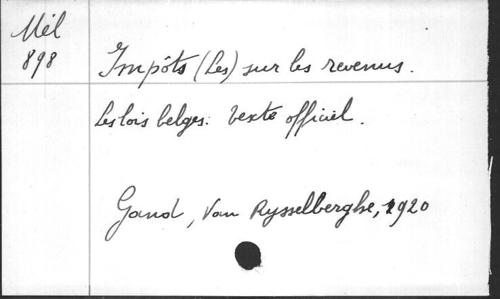 Mél
898
Impôts (Les) sur les revenus.
Les lois belges. Texte officiel.
Gand, Van Rysselberghe, 1920